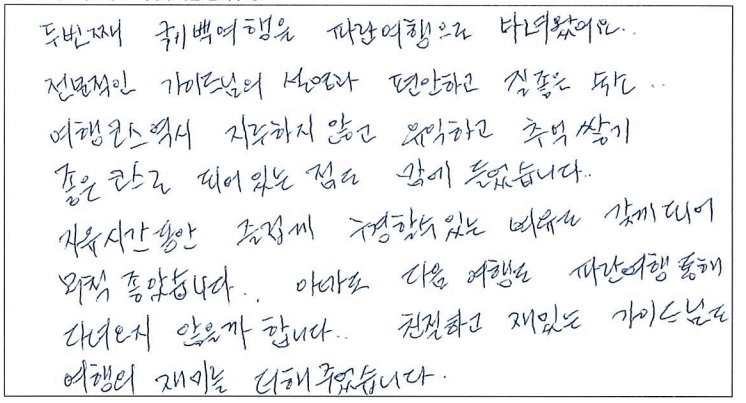 두번째 퀘백여행을 파란여행으로 다녀왔어요..
전문적인 가이드님의 설명과 편안하고 질좋은 ..
여행코스역시 지루하지 않고 유익하고 추억쌓기
좋은 코스로 되어있는 점도 맘에 들었습니다..
자유시간동안 즐겁게 구경할수있는 여유도 갖게되어
무척 좋았습니다.. 아마도 다음 여행도 파란여행 통해
다녀오지 않을까 합니다.. 친절하고 재밌는 가이드님도
여행의 재미를 더해주었습니다.